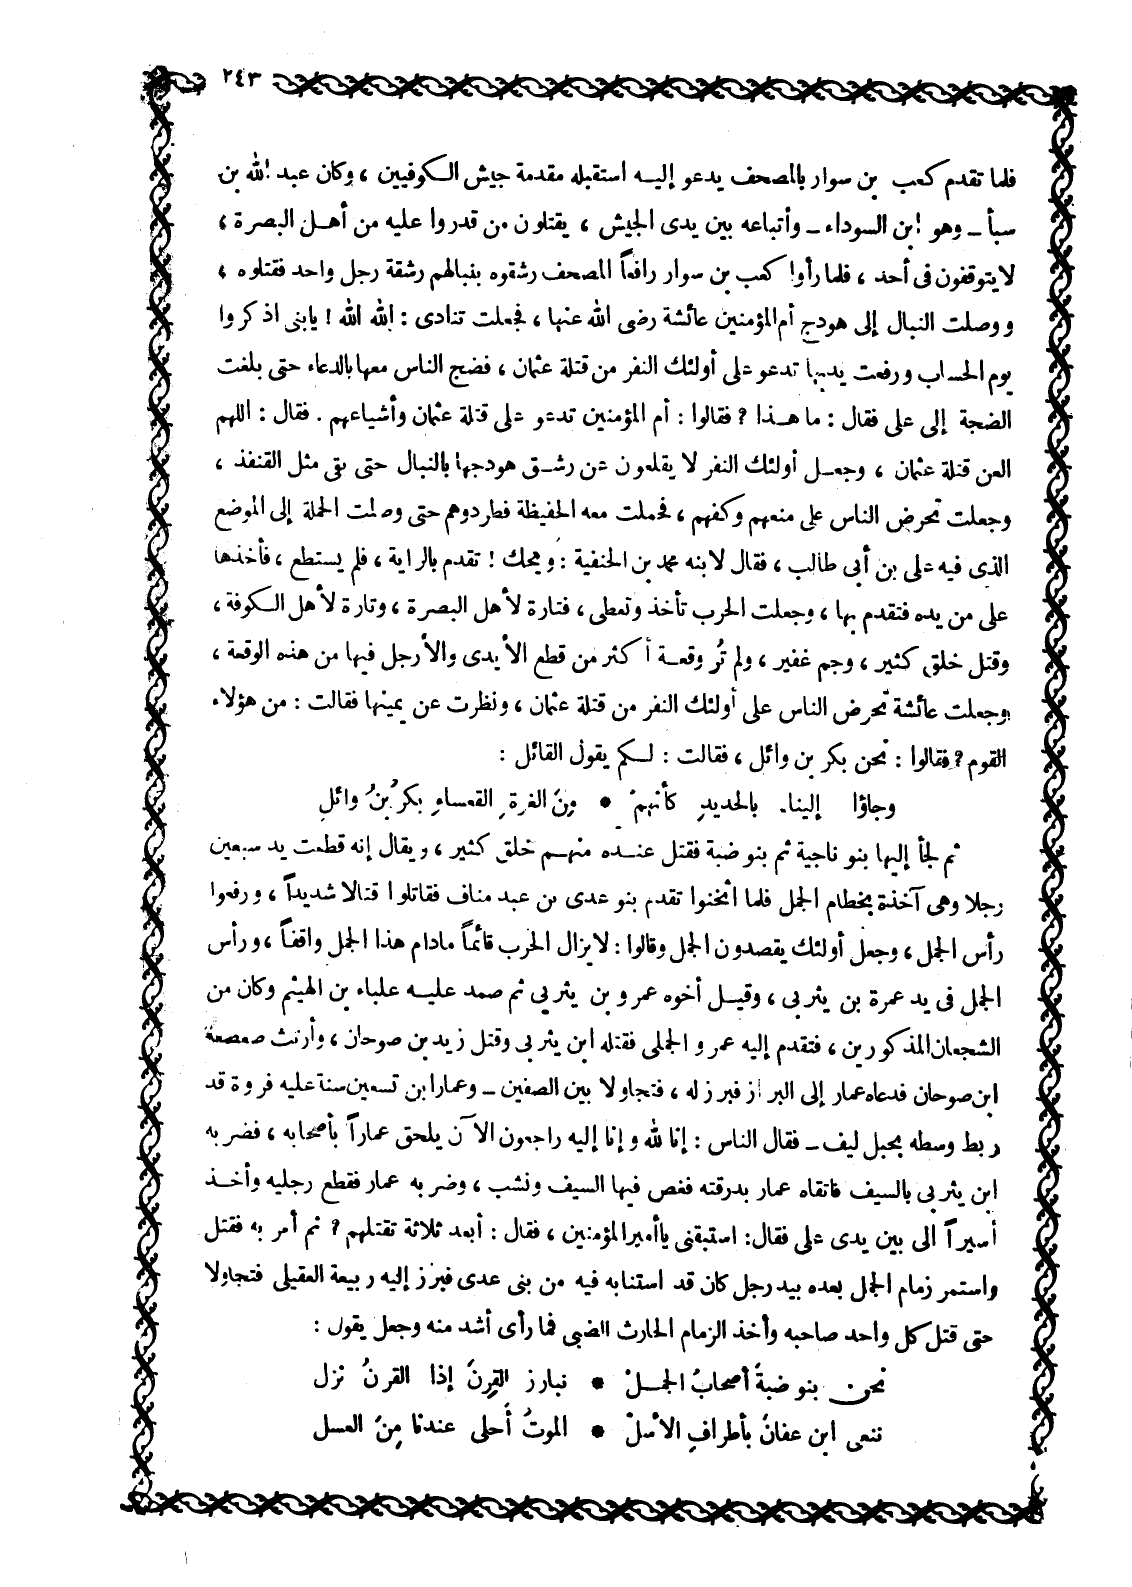 ٢٤٣
فلما تقدم كعب بن سوار بالمصحف يدعو إليه استقبله مقدمة جيش الكوفيين ، وكان عبد الله بن
سبأ ــ وهو ابن السوداء ــ وأتباعه بين يدى الجيش ، يقتلون من قدروا عليه من أهل البصرة ،
لا يتوقفون فى أحد ، فلما رأوا كعب بن سوار رافعاً المصحف رشقوه بنبالهم رشقة رجل واحد فقتلوه ،
ووصلت النبال إلى هودج أم المؤمنين عائشة رضى الله عنها ، فجعلت تنادى : الله الله ! يابنى اذكروا
يوم الحساب ورفعت يديها تدعو على أولئك النفر من قتلة عثمان ، فضج الناس معها بالدعاء حتى بلغت
الضجة إلى على فقال : ما هذا ? فقالوا : أم المؤمنين تدعو على قتلة عثمان وأشياعهم . فقال : اللهم
العن قتلة عثمان ، وجعل أولئك النفر لا يقلعون عن رشق هودجها بالنبال حتى بقى مثل القنفذ ،
وجعلت تحرض الناس على منعهم وكفهم ، فحملت معه الحفيظة فطردوهم حتى وصلت الحملة إلى الموضع
الذى فيه على بن أبى طالب ، فقال لابنه محمد بن الحنفية : ويحك ! تقدم بالراية ، فلم يستطع ، فأخذها
على من يده فتقدم بها ، وجعلت الحرب تأخذ وتعطى ، فتارة لأهل البصرة ، وتارة لأهل الكوفة ،
وقتل خلق كثير ، وجم غفير ، ولم تُر وقعة أكثر من قطع الأيدى والأرجل فيها من هذه الوقعة ،
وجعلت عائشة تحرض الناس على أولئك النفر من قتلة عثمان ، ونظرت عن يمينها فقالت : من هؤلاء
القوم ? فقالوا : نحن بكر بن وائل ، فقالت : لكم يقول القائل :
وجاؤا إلينا بالحديدِ كأنهمْ * مِنَ الغرةِ القعساءِ بكرُ بنُ وائلِ
ثم لجأ إليها بنو ناجية ثم بنو ضبة فقتل عنده منهم خلق كثير ، ويقال إنه قطعت يد سبعين
رجلا وهى آخذة بخطام الجمل فلما أثخنوا تقدم بنو عدى بن عبد مناف فقاتلوا قتالا شديداً ، ورفعوا
رأس الجمل ، وجعل أولئك يقصدون الجمل وقالوا : لا يزال الحرب قائماً مادام هذا الجمل واقفاً ، ورأس
الجمل فى يد عمرة بن يثربى ، وقيل أخوه عمرو بن يثربى ثم صمد عليه علباء بن الهيثم وكان من
الشجعان المذكورين ، فتقدم إليه عمرو الجملى فقتله ابن يثربى وقتل زيد بن صوحان ، وأرتث صعصعة
ابن صوحان فدعاه عمار إلى البراز فبرز له ، فتجاولا بين الصفين ــ وعمار ابن تسعين سنة عليه فروة قد
ربط وسطه بحبل ليف ــ فقال الناس : إنا لله وإنا إليه راجعون الآن يلحق عماراً بأصحابه ، فضربه
ابن يثربى بالسيف فاتقاه عمار بدرقته فغص فيها السيف ونشب ، وضربه عمار فقطع رجليه وأخذ
أسيراً الى بين يدى على فقال: استبقنى ياأمير المؤمنين ، فقال : أبعد ثلاثة تقتلهم ? ثم أمر به فقتل
واستمر زمام الجمل بعده بيد رجل كان قد استنابه فيه من بنى عدى فبرز إليه ربيعة العقيلى فتجاولا
حتى قتل كل واحد صاحبه وأخذ الزمام الحارث الضبى فما رأى أشد منه وجعل يقول :
نحن بنو ضبةَ أصحابُ الجملْ * نبارز القِرنَ إذا القرنُ نزل
ننعى ابن عفانَ بأطرافِ الأسلْ * الموتُ أَحلى عندنا مِنَ العسل